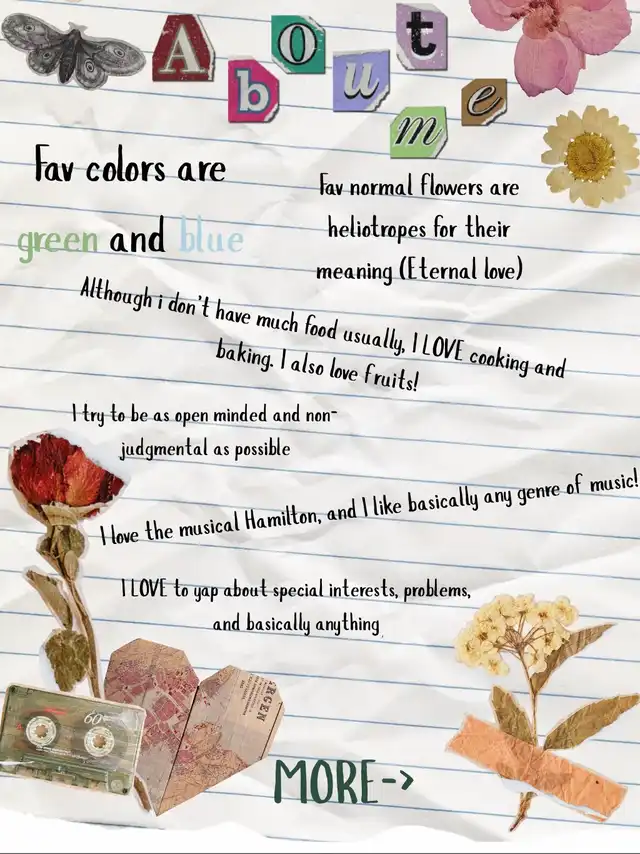 About me
Fav colors are
green and blue
Fav normal flowers are
heliotropes for their
meaning (Eternal love)
Although i don't have much food usually, I LOVE cooking and
baking. I also love fruits!
I try to be as open minded and non-
judgmental as possible
I love the musical Hamilton, and I like basically any genre of music!
I LOVE to yap about special interests, problems,
and basically anything
60
RGEN
MORE->